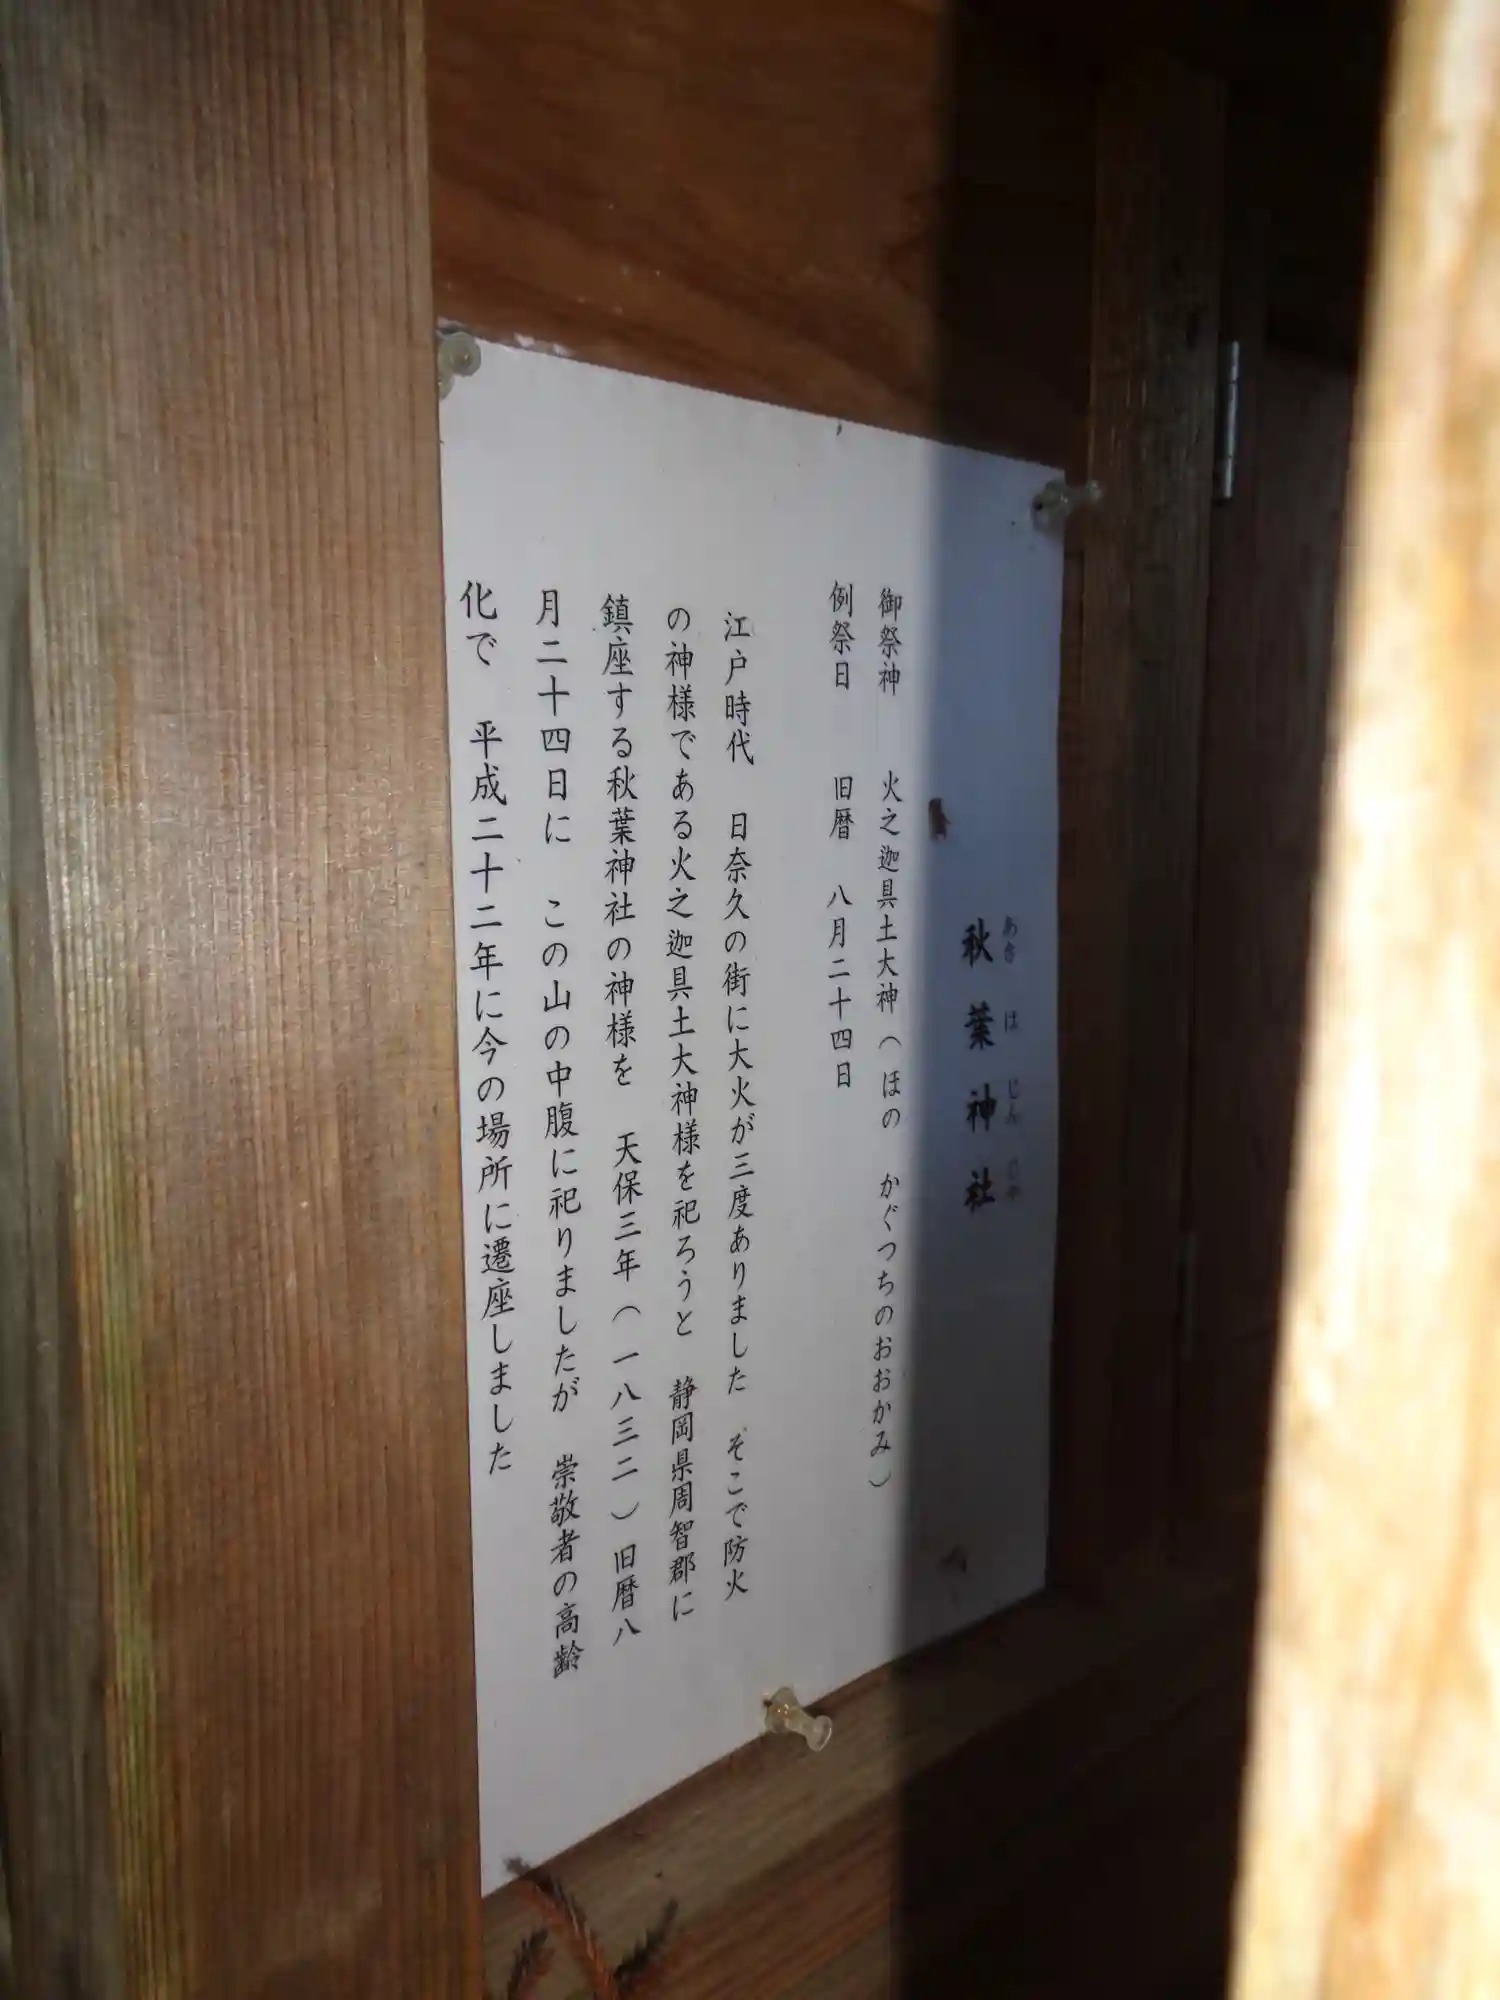 秋葉神社
あき は じん じゃ
御祭神 火之迦具土大神(ほの かぐつちのおおかみ)
例祭日 旧暦 八月二十四日
江戸時代 日奈久の街に大火が三度ありました そこで防火
の神様である火之迦具土大神様を祀ろうと 静岡県周智郡に
鎮座する秋葉神社の神様を 天保三年(一八三二)旧暦八
月二十四日に この山の中腹に祀りましたが 崇敬者の高齢
化で 平成二十二年に今の場所に遷座しました